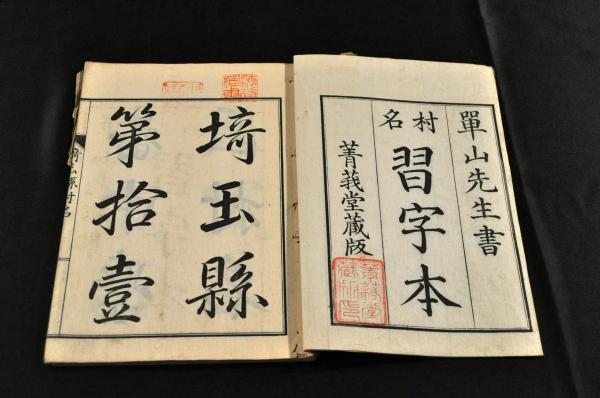 單山先生書
村名
習字本
菁莪堂蔵版
埼玉縣
第拾壹